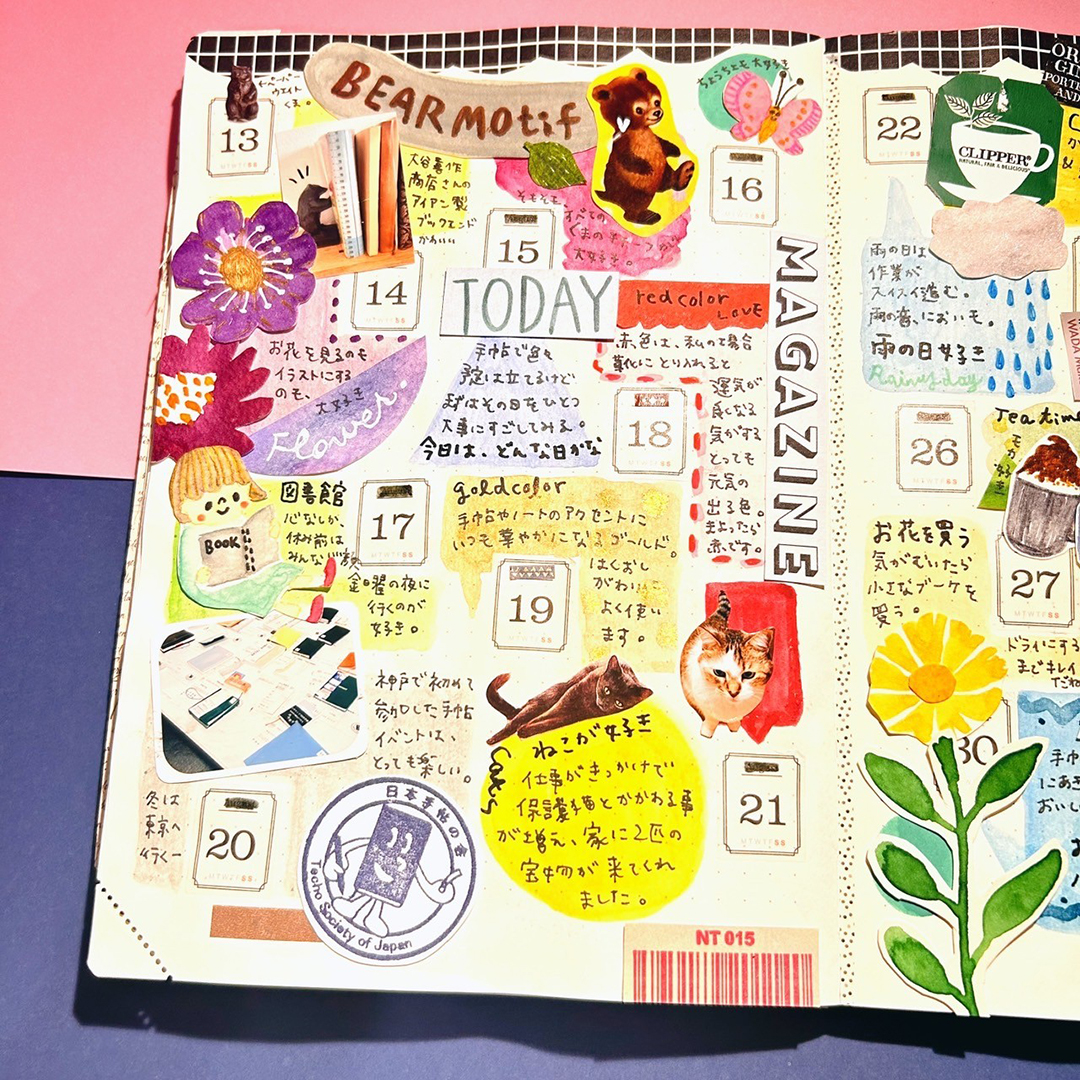 ペーパー
ウエイト
くま。
13
BEAR MOtif
大谷書作
商店さんの
アイアン製
ブックエンド
かわいい
ちょうちょも大好き
16
そもそも
すべての
くまのモチーフが
大好き。
15
14
TODAY
red color
LOVE
赤色は、私の場合
美化にとり入れると
運気が
良くなる
気がする
とっても
元気の
出る色。
まよったら
赤です。
MAGAZINE
お花を見るのも
イラストにする
のも、
大好き
Flower.
手帖で色々
予定は立てるけど
まずはその日をひとつ
大事にすごしてみる。
今日は、どんな日かな
18
図書館
心なしか、
休み前は
みんな
金曜の夜に
行くのが
好き。
BOOK
17
gold color
手帖やノートのアクセントに
いつも華やかになるゴールド。
はくおし
がわいい
よく使い
ます。
19
神戸で初めて
参加した手帖
イベントは、
とっても楽しい。
冬は
東京へ
行くー
20
日本手帖の会
Techo Society of Japan
Cats
ねこが好き
仕事がきっかけで
保護猫とかかわる事
が増え、家に2匹の
宝物が来てくれ
ました。
21
NT 015
22
CLIPPER
NATURAL, FAIR & DELICIOUS
雨の日は
作業が
スイスイ進む。
雨の音、においも。
雨の日好き
Rainy day
26
Tea time
モカ好き
お花を買う
気がむいたら
小さなブーケを
買う。
27
ドライにする
までキレイ
だね
30